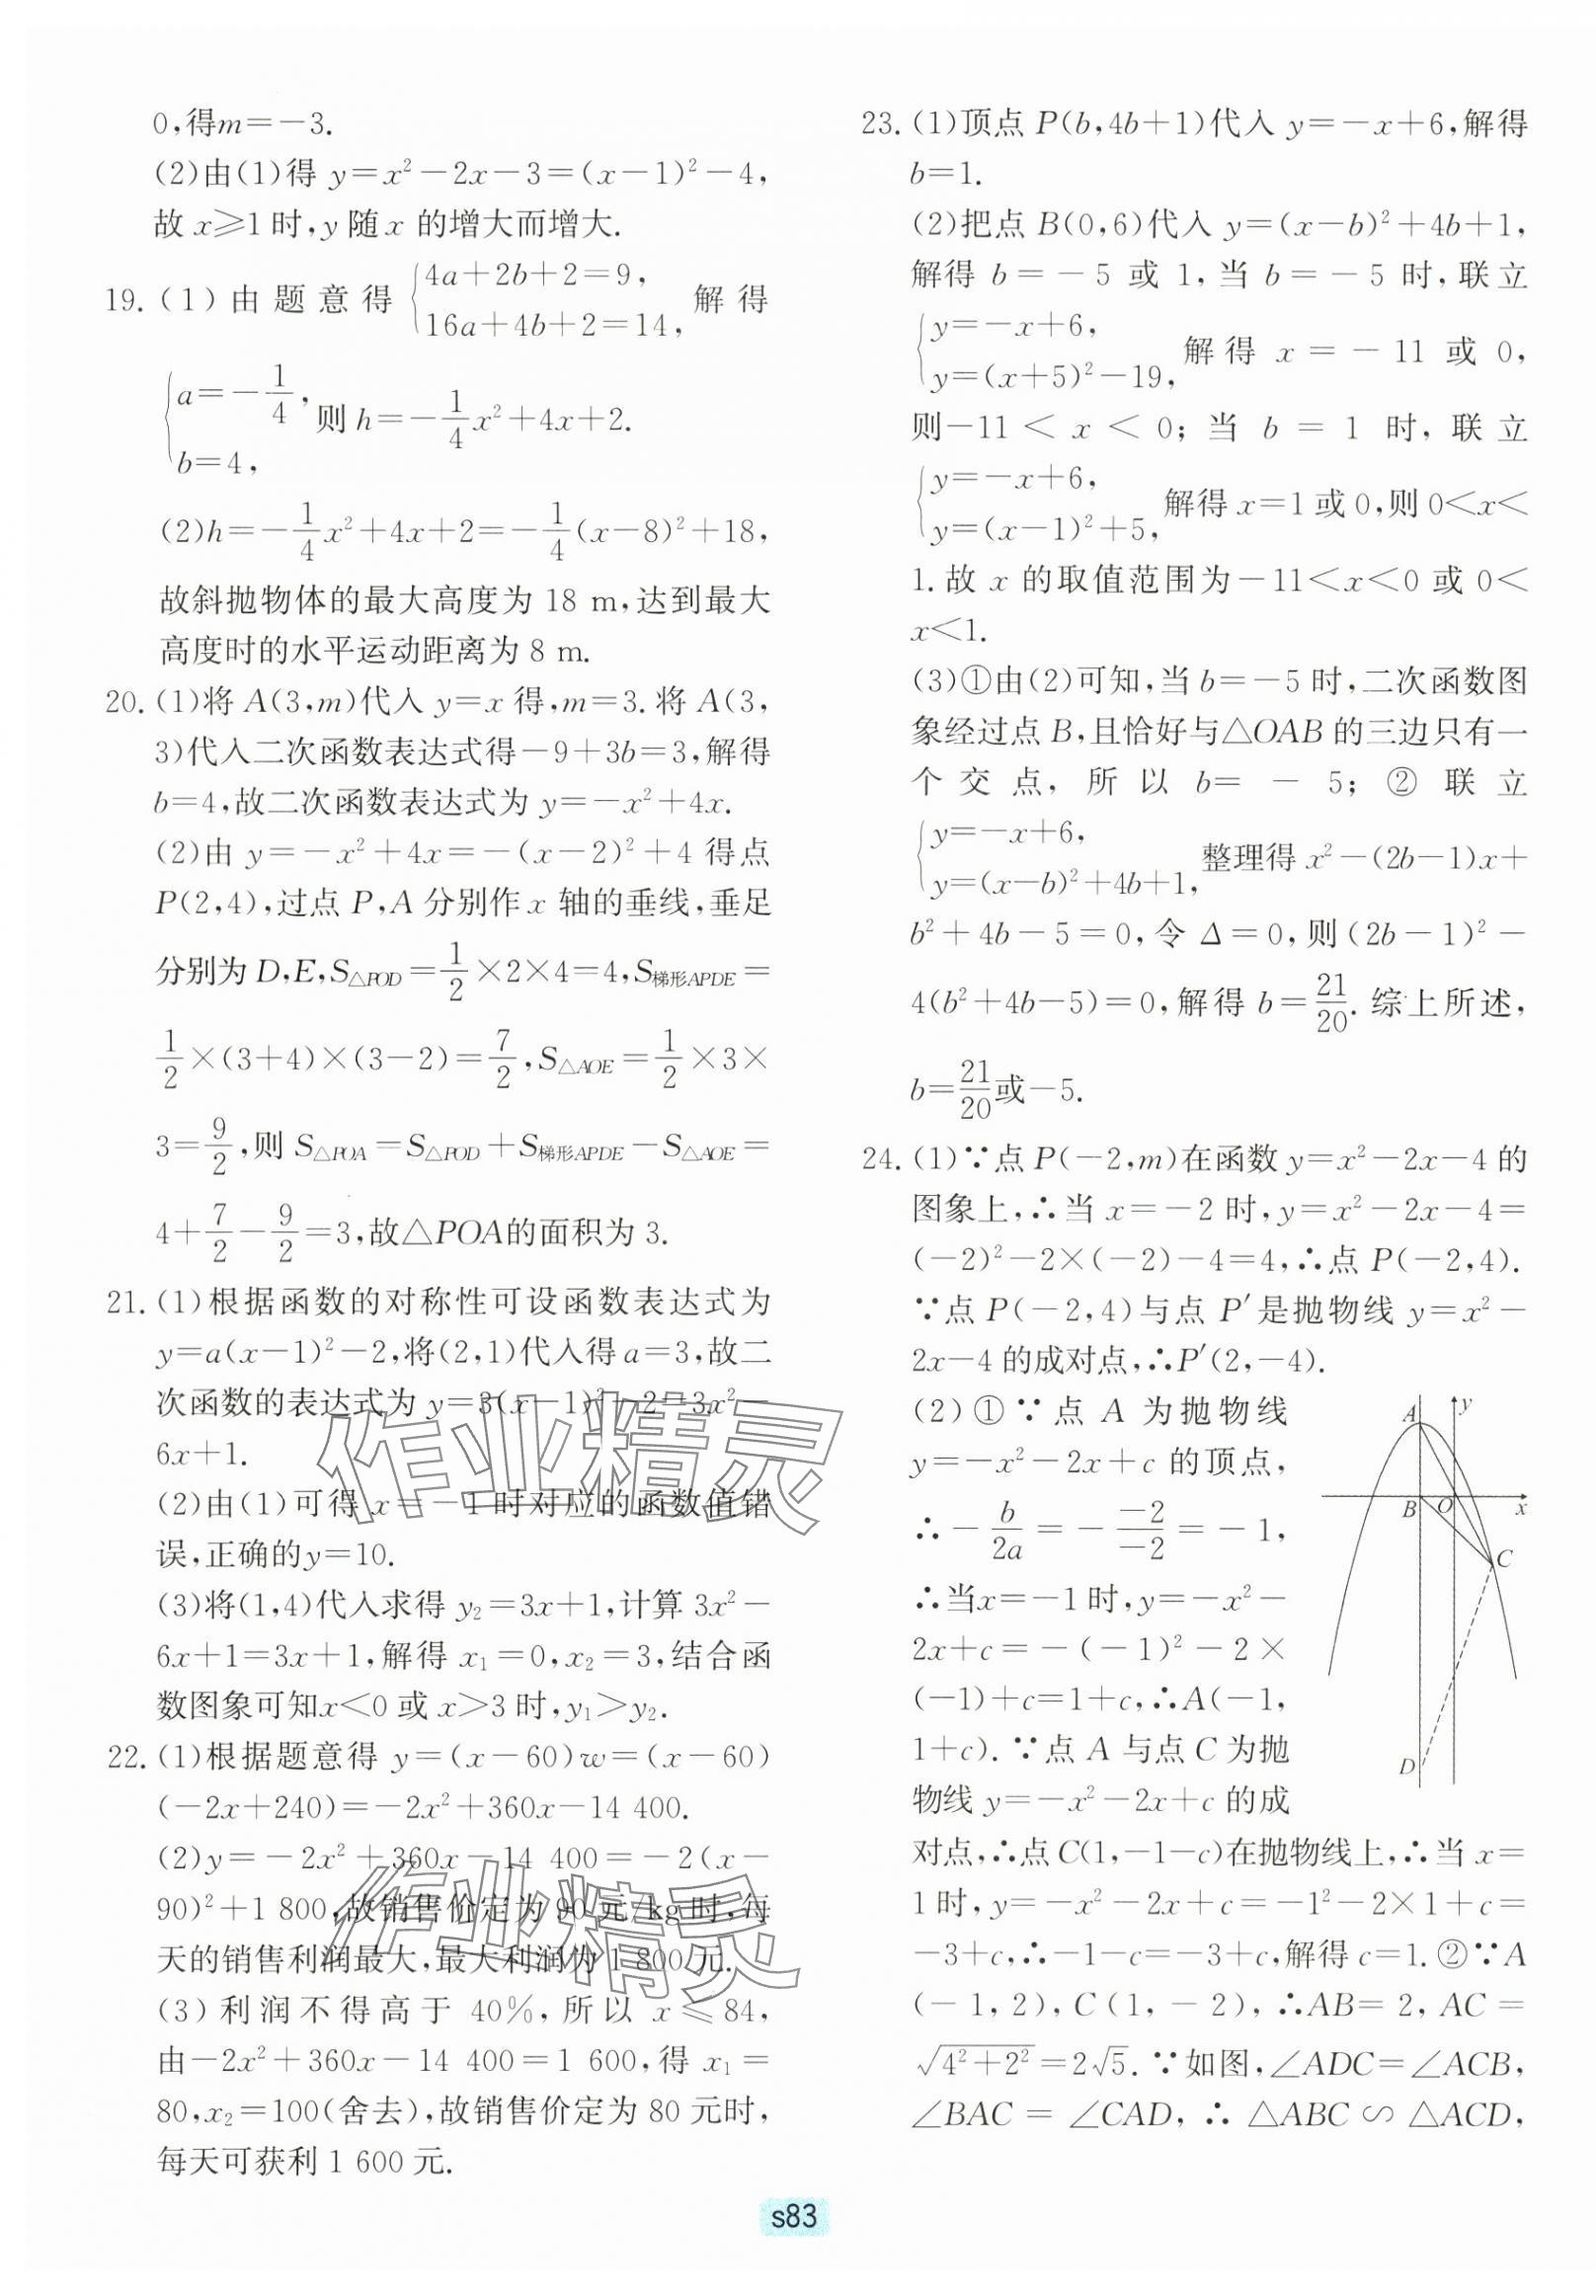 0,得m=-3.
(2)由(1)得 y=x²-2x-3=(x-1)²-4,
故 x≥1 时,y 随 x 的增大而增大.
19. (1) 由题意得 {4a+2b+2=9, 16a+4b+2=14, 解得
{a=-1/4, b=4, 则 h=-1/4x²+4x+2.
(2)h=-1/4x²+4x+2=-1/4(x-8)²+18,
故斜抛物体的最大高度为 18 m,达到最大
高度时的水平运动距离为 8 m.
20. (1)将 A(3,m)代入 y=x 得,m=3. 将 A(3,
3)代入二次函数表达式得-9+3b=3,解得
b=4,故二次函数表达式为 y=-x²+4x.
(2)由 y=-x²+4x=-(x-2)²+4 得点
P(2,4),过点 P,A 分别作 x 轴的垂线,垂足
分别为 D,E,S△POD=1/2×2×4=4,S梯形APDE=
1/2×(3+4)×(3-2)=7/2,S△AOE=1/2×3×
3=9/2,则 S△POA=S△POD+S梯形APDE-S△AOE=
4+7/2-9/2=3,故△POA的面积为 3.
21. (1)根据函数的对称性可设函数表达式为
y=a(x-1)²-2,将(2,1)代入得 a=3,故二
次函数的表达式为 y=3(x-1)²-2=3x²-
6x+1.
(2)由(1)可得 x=-1 时对应的函数值错
误,正确的y=10.
(3)将(1,4)代入求得 y₂=3x+1,计算 3x²-
6x+1=3x+1,解得 x₁=0,x₂=3,结合函
数图象可知x<0 或 x>3 时,y₁>y₂.
22. (1)根据题意得 y=(x-60)w=(x-60)
(-2x+240)=-2x²+360x-14 400.
(2)y=-2x²+360x-14 400=-2(x-
90)²+1 800,故销售价定为 90 元/kg 时,每
天的销售利润最大,最大利润为 1 800 元.
(3)利润不得高于 40%,所以 x≤84,
由-2x²+360x-14 400=1 600,得 x₁=
80,x₂=100(舍去),故销售价定为 80 元时,
每天可获利 1 600 元.
23. (1)顶点 P(b,4b+1)代入 y=-x+6,解得
b=1.
(2)把点 B(0,6)代入 y=(x-b)²+4b+1,
解得 b=-5 或 1,当 b=-5 时,联立
{y=-x+6, y=(x+5)²-19, 解得 x=-11 或 0,
则-11<x<0;当 b=1 时,联立
{y=-x+6, y=(x-1)²+5, 解得 x=1 或 0,则 0<x<
1. 故 x 的取值范围为-11<x<0 或 0<
x<1.
(3)①由(2)可知,当 b=-5 时,二次函数图
象经过点 B,且恰好与△OAB 的三边只有一
个交点,所以 b=-5;②联立
{y=-x+6, y=(x-b)²+4b+1, 整理得 x²-(2b-1)x+
b²+4b-5=0,令 Δ=0,则(2b-1)²-
4(b²+4b-5)=0,解得 b=21/20. 综上所述,
b=21/20或-5.
24. (1)∵点 P(-2,m)在函数 y=x²-2x-4 的
图象上,∴当 x=-2 时,y=x²-2x-4=
(-2)²-2×(-2)-4=4,∴点 P(-2,4).
∵点 P(-2,4)与点 P′是抛物线 y=x²-
2x-4 的成对点,∴P′(2,-4).
(2)①∵点 A 为抛物线
y=-x²-2x+c 的顶点,
∴-b/2a=--2/-2=-1,
∴当x=-1 时,y=-x²-
2x+c=-(-1)²-2×
(-1)+c=1+c,∴A(-1,
1+c).∵点 A 与点 C 为抛
物线 y=-x²-2x+c 的成
对点,∴点 C(1,-1-c)在抛物线上,∴当 x=
1 时,y=-x²-2x+c=-1²-2×1+c=
-3+c,∴-1-c=-3+c,解得 c=1. ②∵A
(-1,2),C(1,-2),∴AB=2,AC=
√(4²+2²)=2√5. ∵如图,∠ADC=∠ACB,
∠BAC=∠CAD,∴△ABC∽△ACD,
A
y
B
O
x
C
D
作业精灵
作业精灵
s83